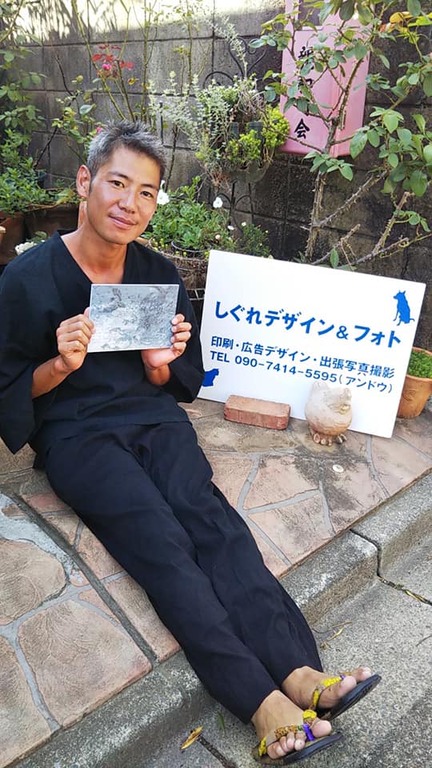 会
しぐれデザイン&フォト
印刷・広告デザイン・出張写真撮影
TEL 090-7414-5595(アンドウ)